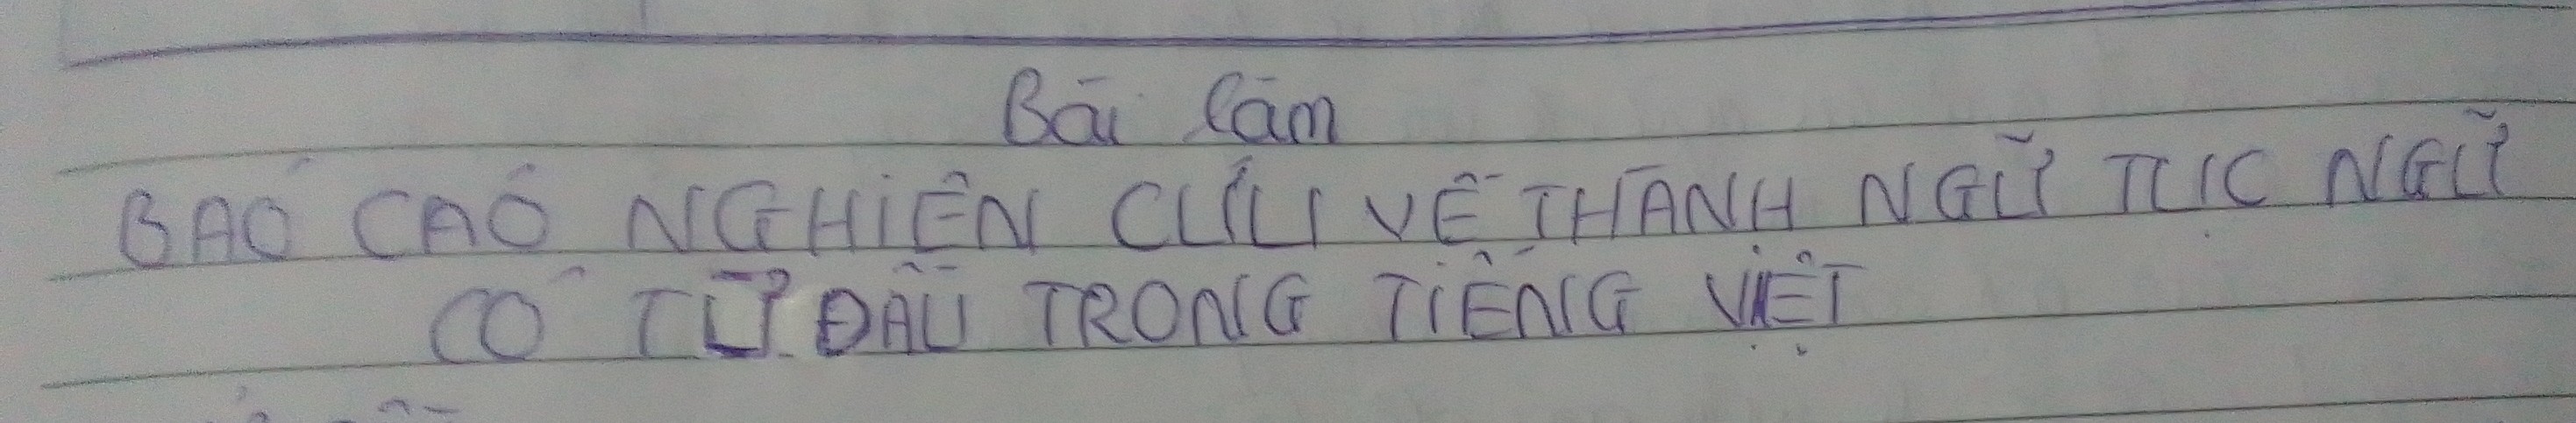 Bài làm
BÁO CÁO NGHIÊN CỨU VỀ THÀNH NGỮ TỤC NGỮ
CÓ TỪ ĐẦU TRONG TIẾNG VIỆT